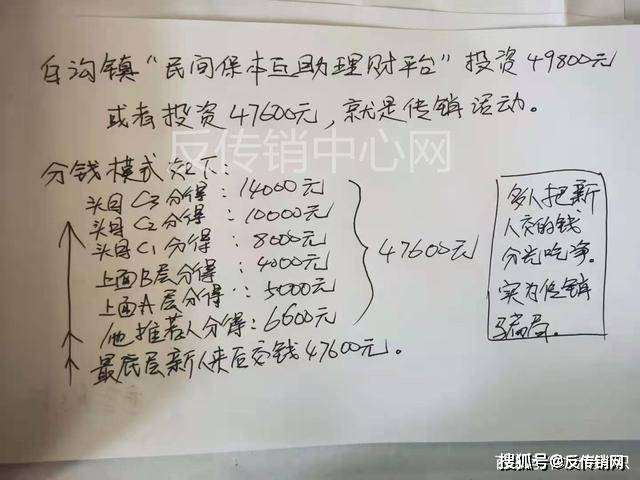 白沟镇“民间保本互助理财平台”投资49800元
或者投资47600元，就是传销活动。
反传销中心网
分钱模式如下：
头目C3分得：14000元
头目C2分得：10000元
头目C1分得：8000元
上面B层分得：4000元
上面A层分得：5000元
他推荐人分得：6600元
最底层新人来后交钱47600元。
47600元
多人把新
人交的钱
分光吃净。
实为传销
骗局。
搜狐号@反传销网